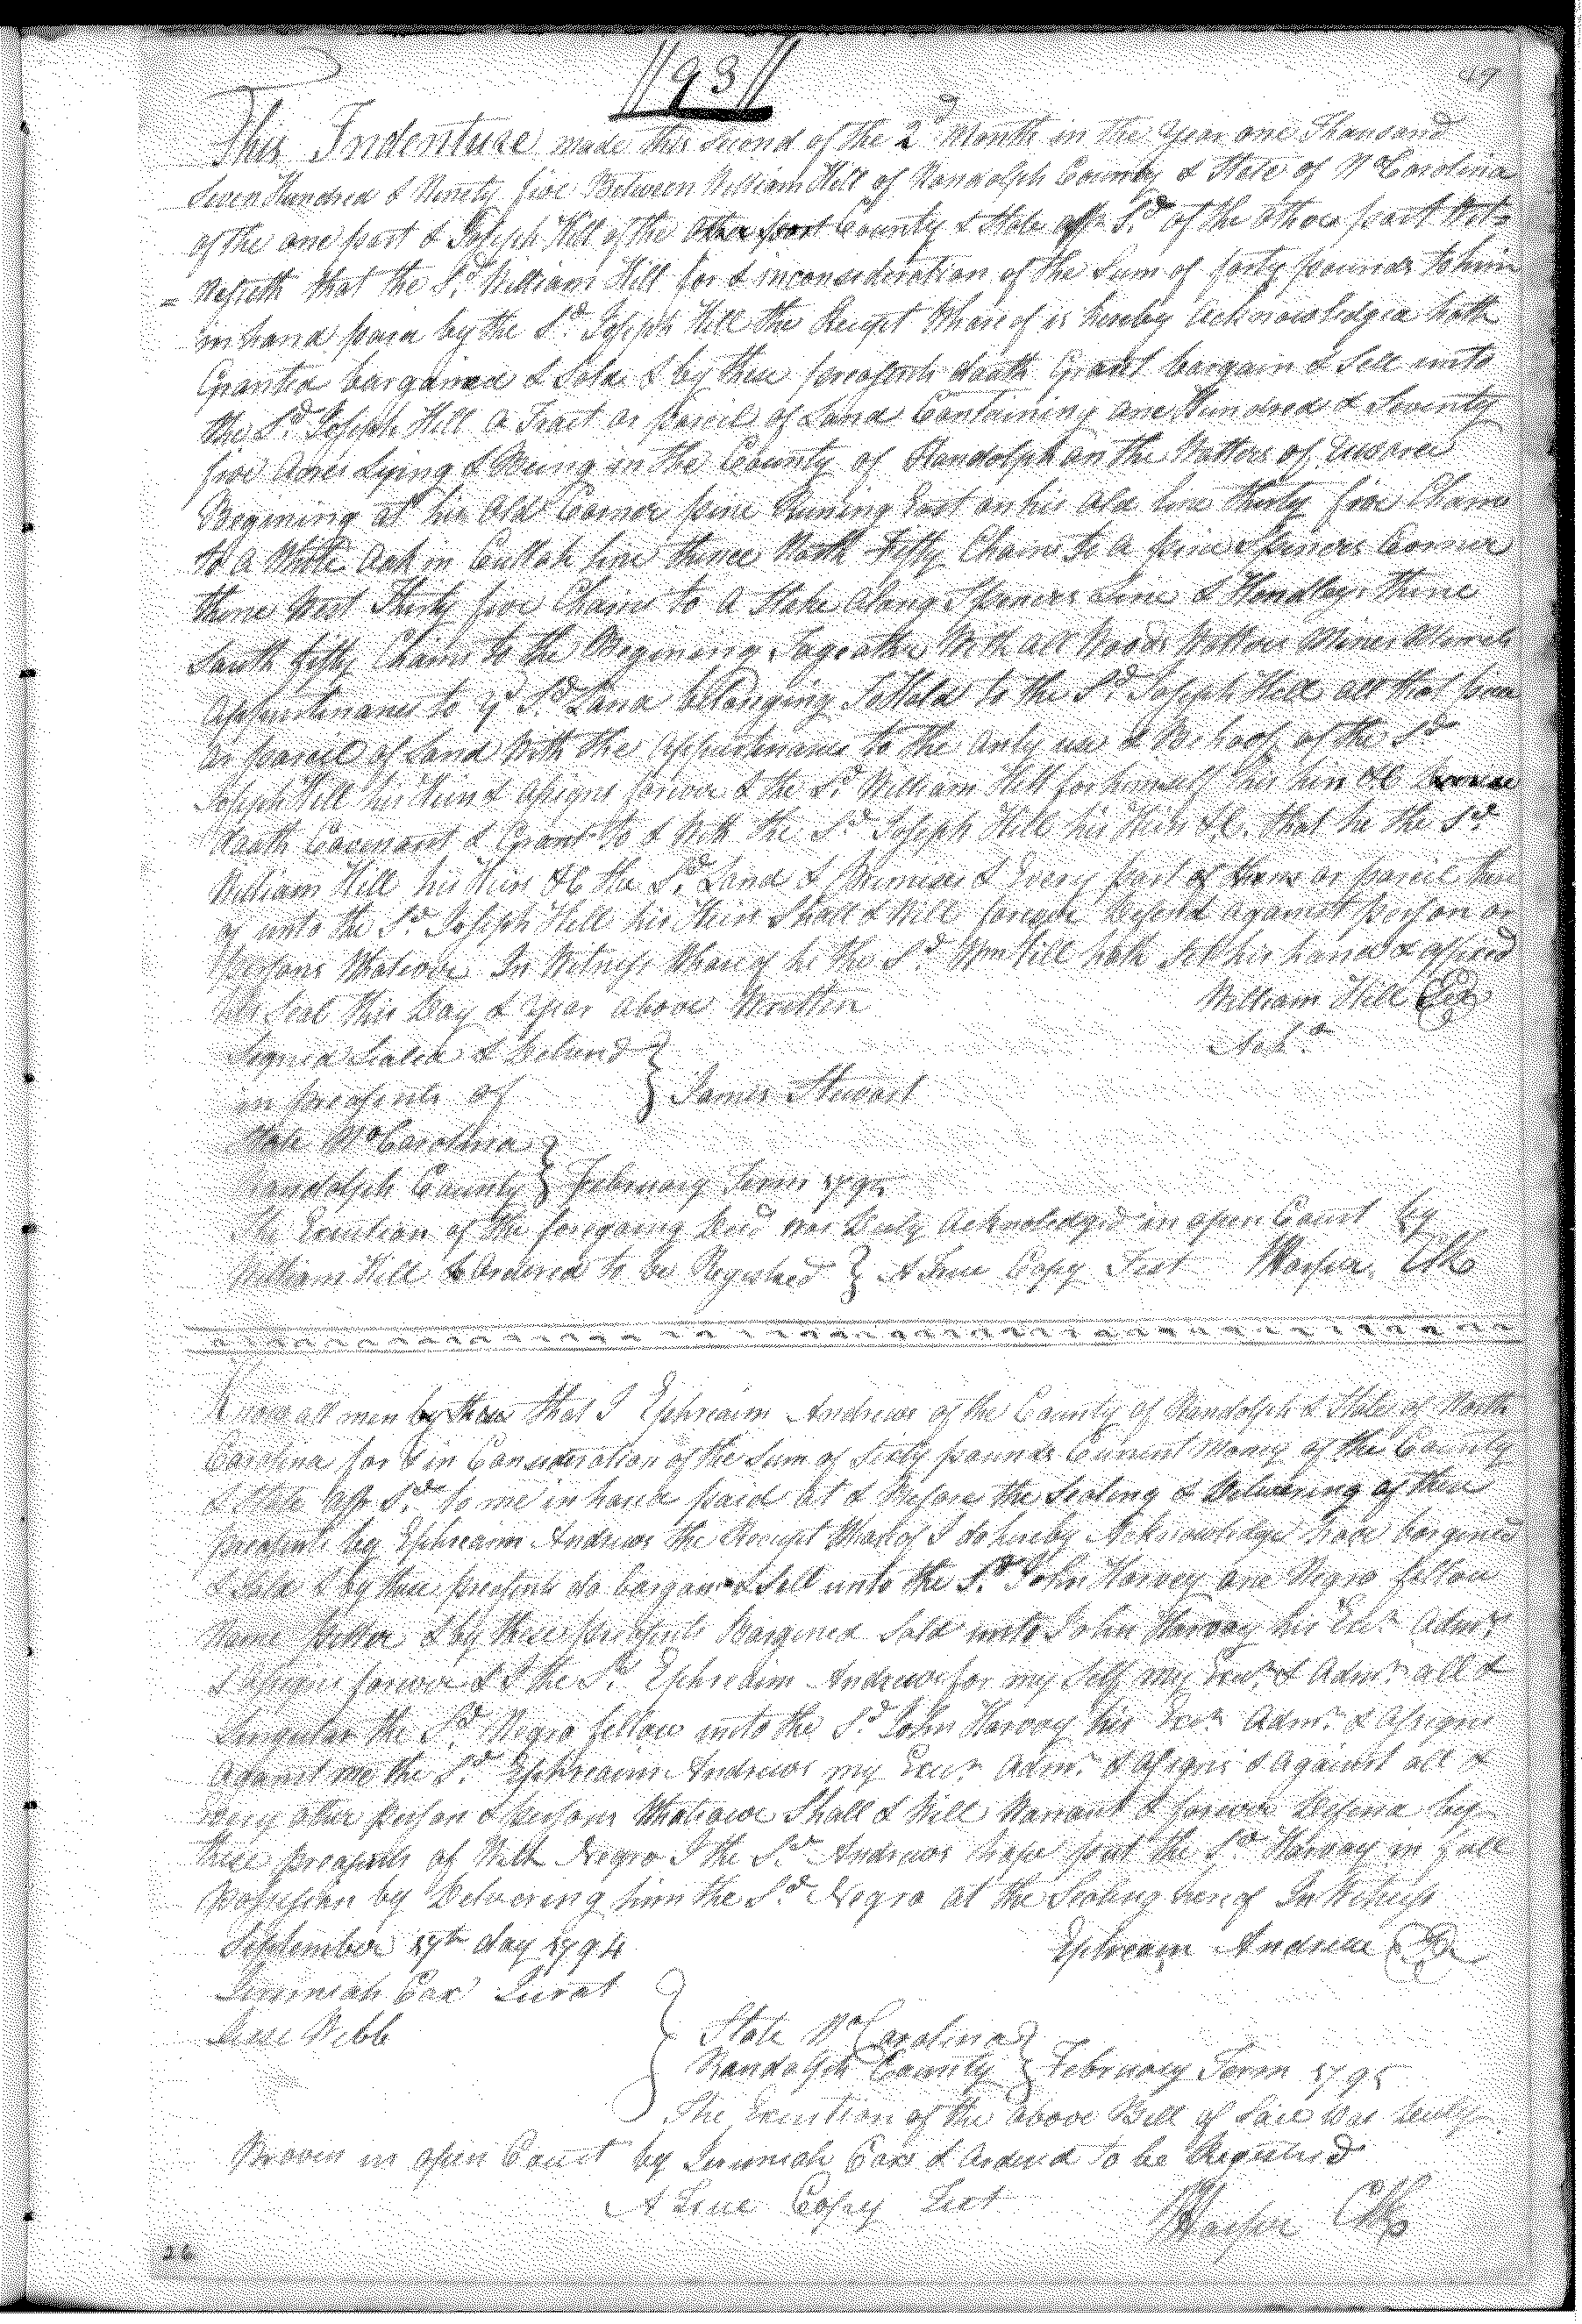 //93//
49
This Indenture made this second of the 2d Month in the Year one Thousand
Seven Hundred & Ninety five Between William Hill of Randolph County & State of No Carolina
of the one part & Joseph Hill of the Other part County & State aff Sd of the other part Wit=
= Nesseth that the Sd William Hill for & inconsideration of the Sum of forty pounds to him
in hand paid by the Sd Joseph Hill the Receipt Whareof is hereby Acknowledged hath
Granted bargained & Sold & by these preasents doath Grant bargain & Sell unto
the Sd Joseph Hill a Tract or parcil of Land Containing one Hundred & Seventy
five Acres Lying & Being in the County of Randolph on the Watters of
Begining at his Old Corner pine Runing East on his old line thirty five Chains
to a White Oak in line thence North Fifty Chains to a pine Spencers Corner
thene West Thirty five Chains to a Stake along Spencers Line & Hendleys thene
South fifty Chains to the Begining Togeather With all Woods Watters Mines Minerals
Appurtinances to ye Sd Land belongeing To Hold to the Sd Joseph Hill all that
or parcil of Land With the Appurtinances to the only use & Behoof of the Sd
Joseph Hill his Heirs & Assigns forever & the Sd William Hill for himself his heirs &C
doath Covenant & Grant to & With the Sd Joseph Hill his Heirs &C. that he the Sd
William Hill his Heirs &C the Sd Land & Premises & Every part of them or parcil there
of unto the Sd Joseph Hill his Heirs Shall & Will foreger Defend against person or
Persons Whatsover In Witness Whareof he the Sd Wm Hill hath Set his hand & affixed
his Seal this Day & year above Written William Hill
Signed Sealed & Deliverd
in preasents of } James Stewart
State No Carolina
Randolph County } February Term 1795
The Execution of the foregoing Deed was Duly Acknoledged in open Court by
William Hill & Ordered to be Registred } A True Copy Test Harper Clk
Know all men by these that I Ephreaim Andrews of the County of Randolph & State of North
Carolina for & in Consideration of the Sum of Sixty pounds Current Money of the County
& State aff Sd to me in hand paid at & Before the Sealing & Delivering of these
preasents by Ephreaim Andrews the Receipt Whareof I do hereby Acknowledge have bargined
& Sold & by these preasents do bargain & Sell unto the Sd John Harvey one Negro fellow
Name & by these preasents Bargened Sold unto John Harvey his Exr Admr
& assigns forever & I the Sd Ephreaim Andrews for my Self my Exr & Admr all &
Singular the Sd Negro fellow unto the Sd John Harvey his Exr Admr & Assigns
Against me the Sd Ephreaim Andrews my Exr Admr & Assigns & Against all &
every other person & persons Whatsover Shall & Will Warrant & forever Defend by
these preasents of Wch Negro I the Sd Andrews have put the Sd Harvey in full
possession by Delivering him the Sd Negro at the Sealing hereof In Witness
September 17th day 1794 Ephream Andrew
Jeremiah Cox Jurat
Jesse Webb
State No Carolina
Randolph County } February Term 1795
The Execution of the above Bill of Sale was duly
Proven in open Court by Jeremiah Cox & Ordered to be Registred
A True Copy Test Harper Clk
26